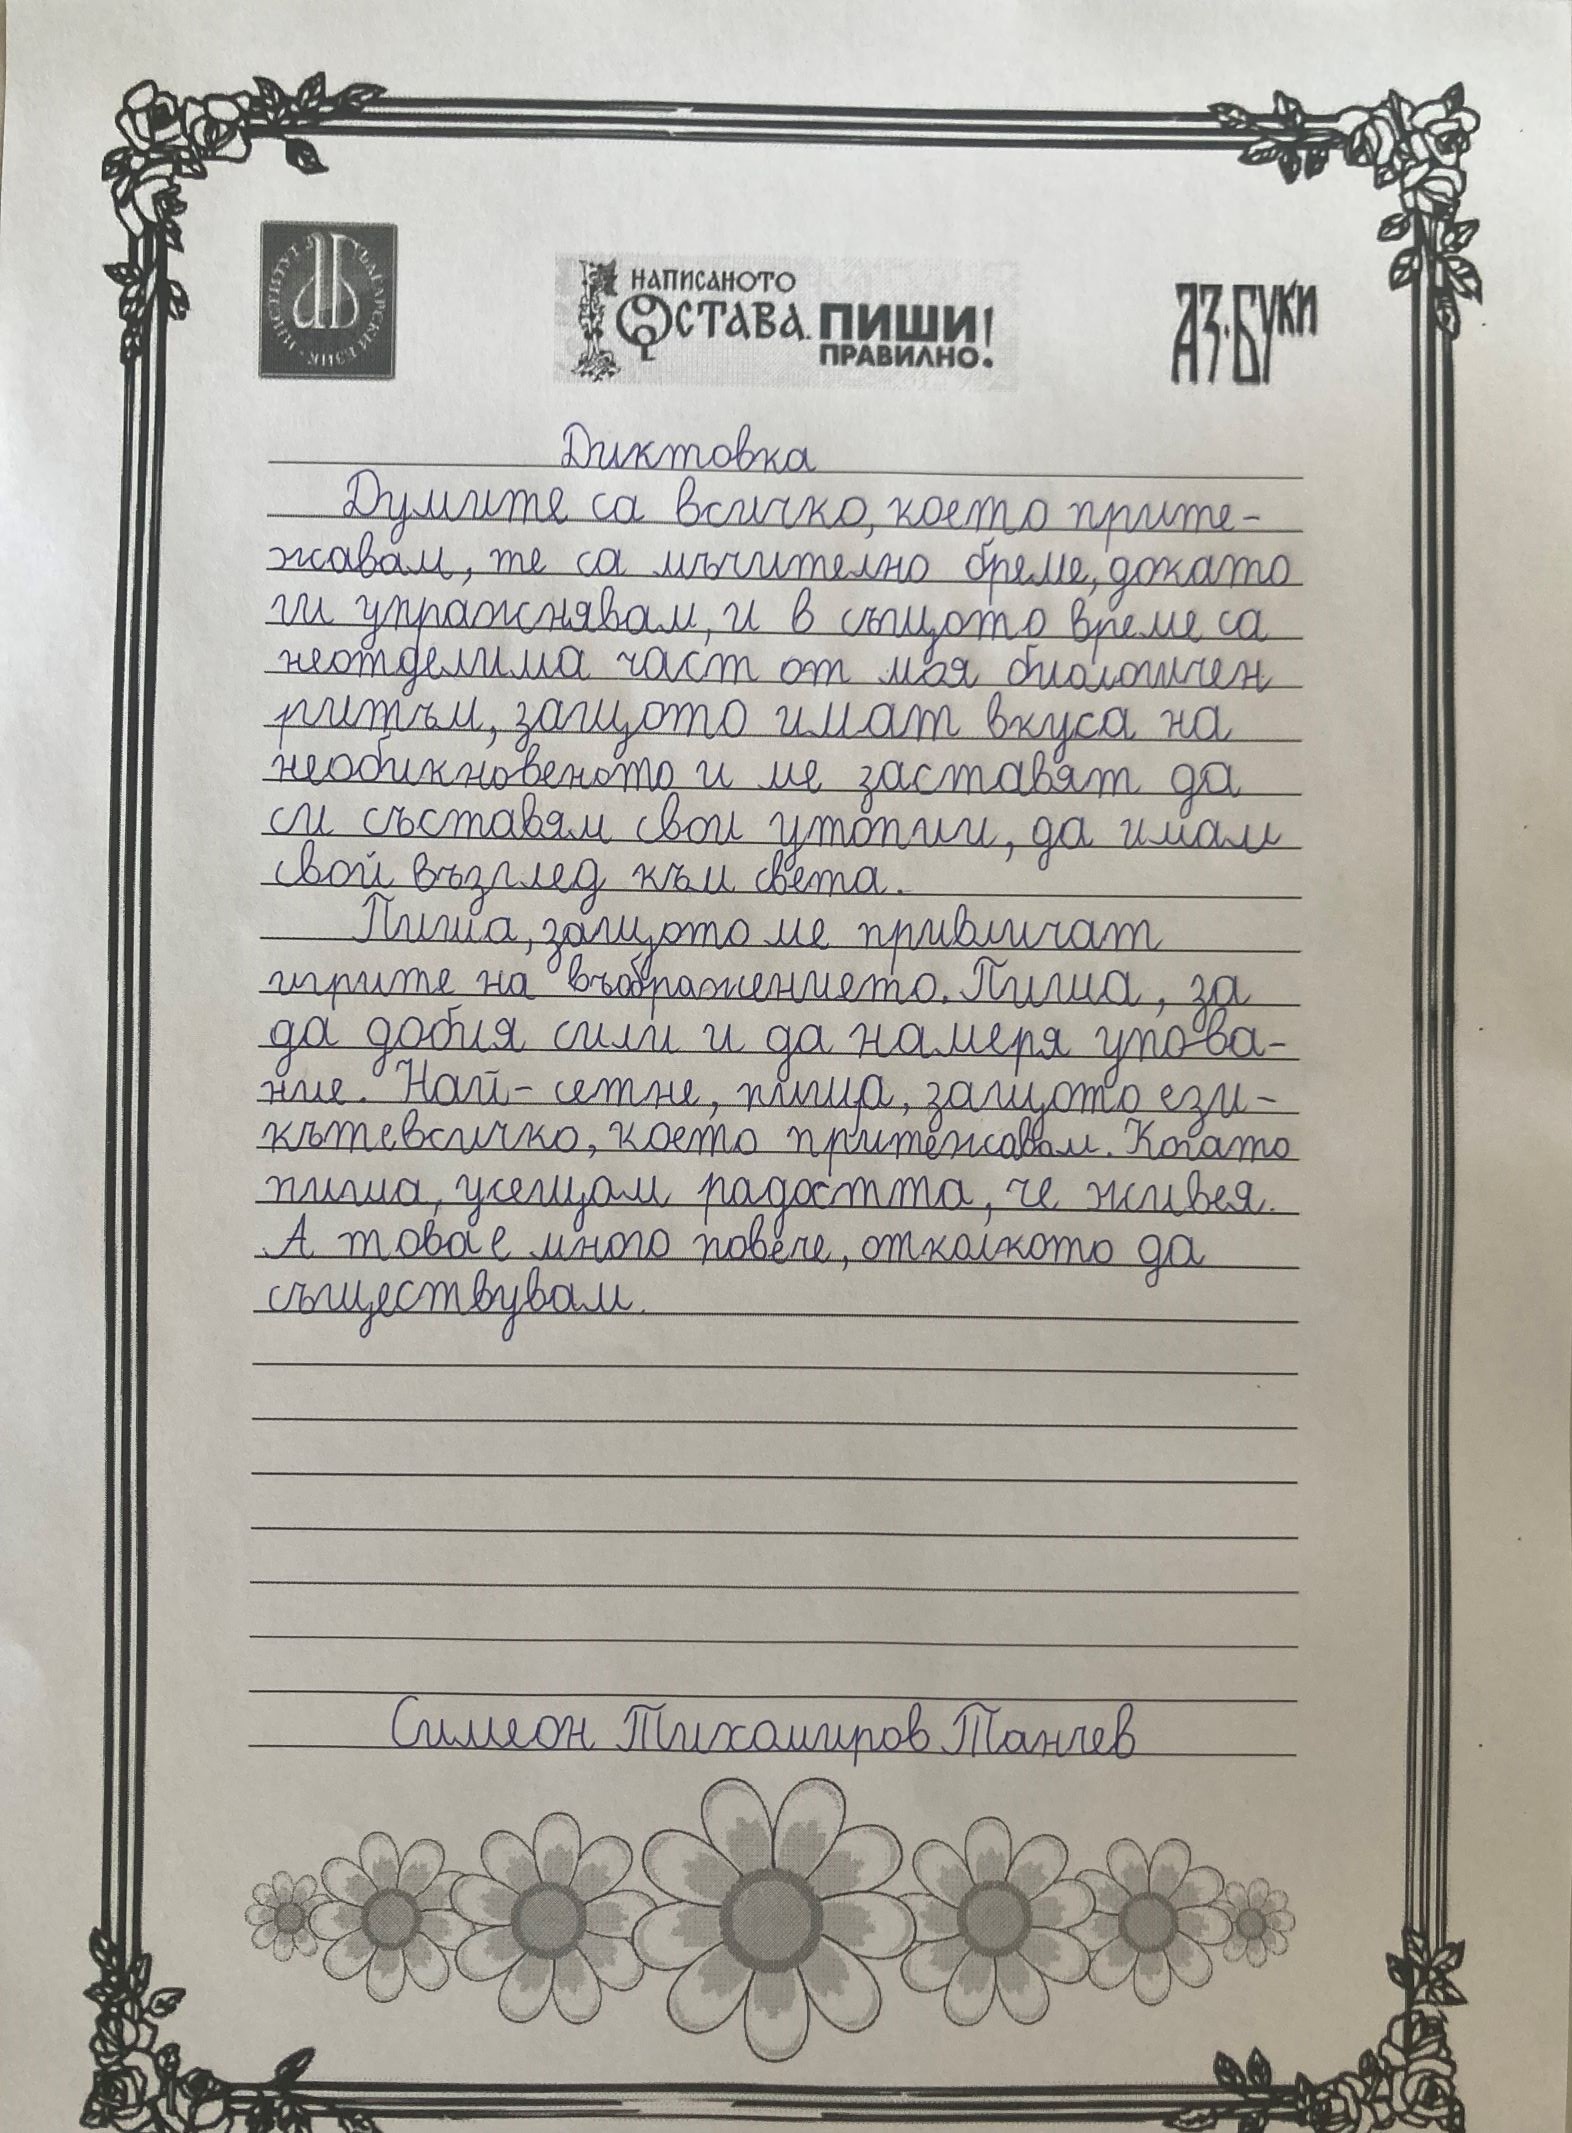 ИНСТИТУТ ЗА БЪЛГАРСКИ ЕЗИК
НАПИСАНОТО
ОСТАВА. ПИШИ
ПРАВИЛНО!
АЗ·БУКИ
Диктовка
Думите са всичко, което прите-
жавам, те са мъчително бреме, докато
ги упражнявам, и в същото време са
неотделима част от моя биологичен
ритъм, защото имат вкуса на
необикновеното и ме заставят да
си съставям свои утопии, да имам
свой възглед към света.
Пиша, защото ме привличат
игрите на въображението. Пиша, за
да добия сили и да намеря упова-
ние. Най-сетне, пиша, защото ези-
кътевсичко, което притежавам. Когато
пиша, усещам радостта, че живея.
А това е много повече, отколкото да
съществувам.
Симеон Тихомиров Танчев